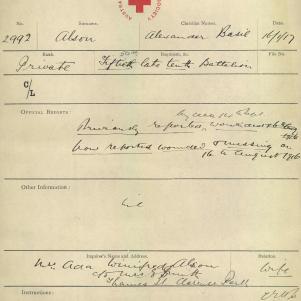 No. Surname. Christian Names. Date.
2992 Alson Alexander Basil 16/4/17
Rank. Regiment, &c. File No.
50th
Private Fiftieth late tenth Battalion
C/L
OFFICIAL REPORTS:
Previously reported wounded
Now reported wounded & missing on
16th August 1916
Other Information:
Nil
Inquirer's Name and Address. Relation.
Mrs Ada Winifred Alson Wife
Thames St Clarence Park
Instructions: